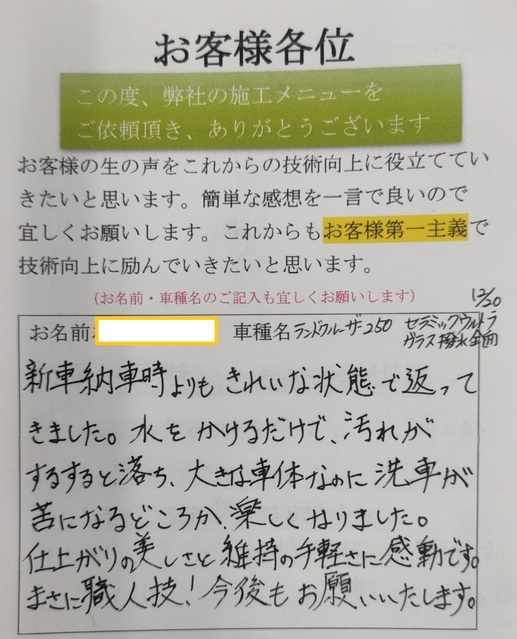 お客様各位
この度、弊社の施工メニューを
ご依頼頂き、ありがとうございます
お客様の生の声をこれからの技術向上に役立ててい
きたいと思います。簡単な感想を一言で良いので
宜しくお願いします。これからもお客様第一主義で
技術向上に励んでいきたいと思います。
(お名前・車種名のご記入も宜しくお願いします)
12/20
お名前 車種名 ランドクルーザー250 セラミックウルトラ
ガラス撥水全面
新車納車時よりもきれいな状態で返って
きました。水をかけるだけで、汚れが
するすると落ち、大きな車体なのに洗車が
苦になるどころか、楽しくなりました。
仕上がりの美しさと維持の手軽さに感動です。
まさに職人技!今後もお願いいたします。